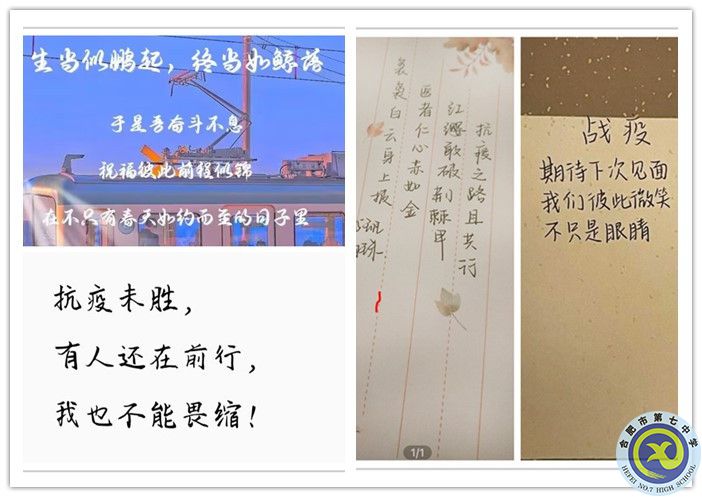 生当似鹏起，终当如鲸落
于是吾奋斗不息
祝福彼此前程似锦
在不只有春天如约而至的日子里
抗疫未胜，
有人还在前行，
我也不能畏缩！
抗疫之路且共行
红缨敢破荆棘甲
医者仁心赤如金
袅袅白云身上披
1/1
战疫
期待下次见面
我们彼此微笑
不只是眼睛
合肥市第七中学
HEFEI NO.7 HIGH SCHOOL